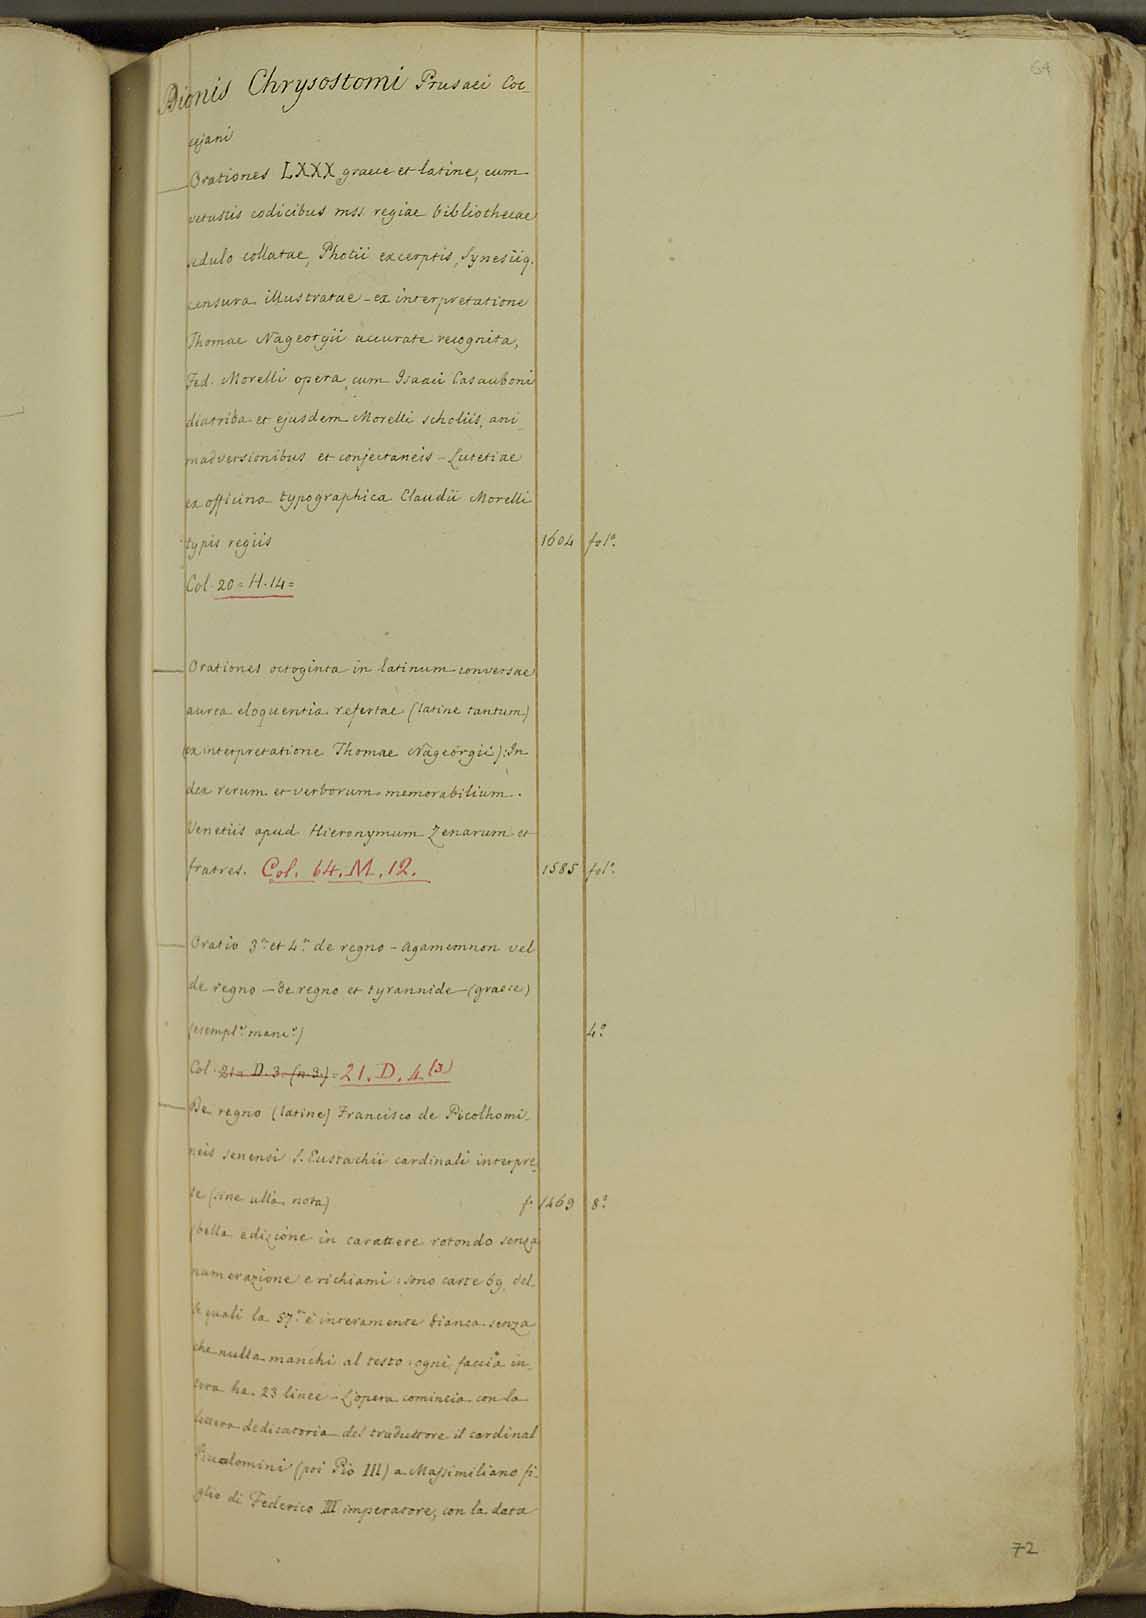 64
Dionis Chrysostomi Prusaei Coc-
cejani
Orationes LXXX graece et latine, cum
vetustis codicibus mss. regiae bibliothecae
sedulo collatae, Photii excerptis, Synesiiq.
censura illustratae - ex interpretatione
Thomae Nageorgii accurate recognita,
Fed. Morelli opera, cum Isaaci Casauboni
diatriba et ejusdem Morelli scholiis, ani-
madversionibus et conjectaneis - Lutetiae
ex officina typographica Claudii Morelli
typis regiis 1604 fol.º
Col. 20 = H. 14 =
Orationes octoginta in latinum conversae
aurea eloquentia refertae (latine tantum)
(ex interpretatione Thomae Nageorgii): In
dex rerum et verborum memorabilium.
Venetiis apud Hieronymum Zenarum et
fratres. Col. 64. M. 12. 1585 fol.º
Oratio 3.ª et 4.ª de regno - Agamemnon vel
de regno - De regno et tyrannide - (graece)
(esempl.e manc.e) 4.º
Col. 21 = D. 3. (n. 3.) = 21. D. 4 (3)
De regno (latine) Francisco de Picolhomi-
neis senensi S. Eustachii cardinali interpre-
te (sine ulla nota) f. 1469 8.º
(bella edizione in carattere rotondo senza
numerazione e richiami: sono carte 69, del-
le quali la 57.ª è interamente bianca senza
che nulla manchi al testo: ogni faccia in-
tera ha 23 linee - L'opera comincia con la
lettera dedicatoria del traduttore il cardinal
Piccolomini (poi Pio III) a Massimiliano fi-
glio di Federico III imperatore, con la data
72